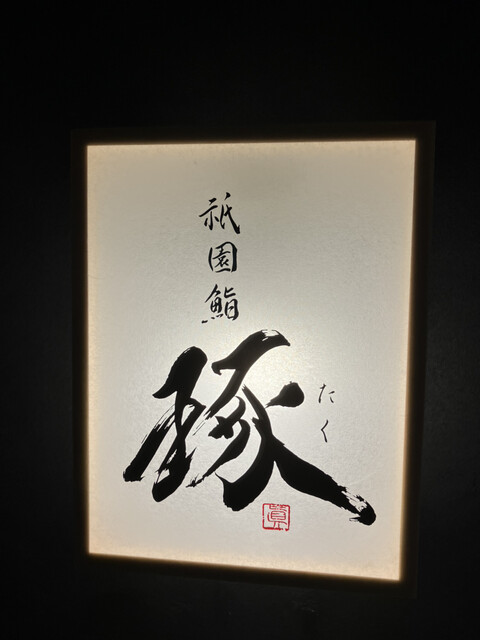 祇園鮨
琢
たく